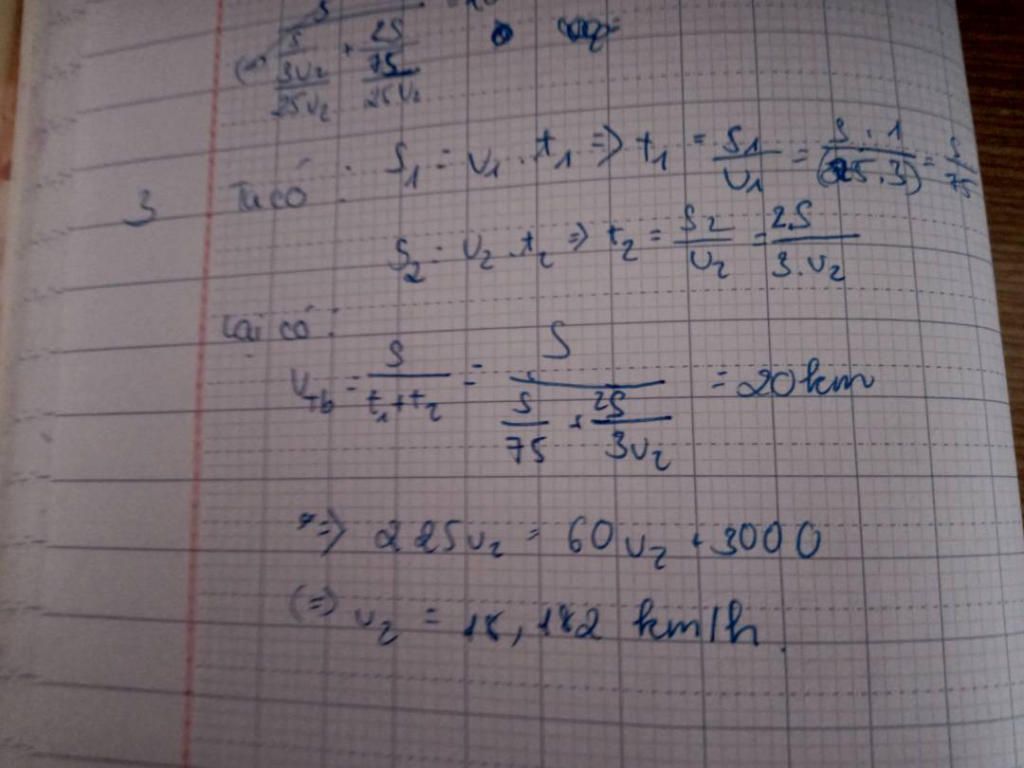 S
S/(3v₂)/(25v₂) + 2S/75/(25v₂)
3 Ta có: S₁ = v₁ . t₁ => t₁ = S₁/v₁ = S.1/(25.3) = S/75
S₂ = v₂ . t₂ => t₂ = S₂/v₂ = 2S/3.v₂
Lại có:
v_tb = S/(t₁+t₂) = S/(S/75 + 2S/3v₂) = 20km
=> 225v₂ = 60v₂ + 3000
(=> v₂ = 18,182 km/h.